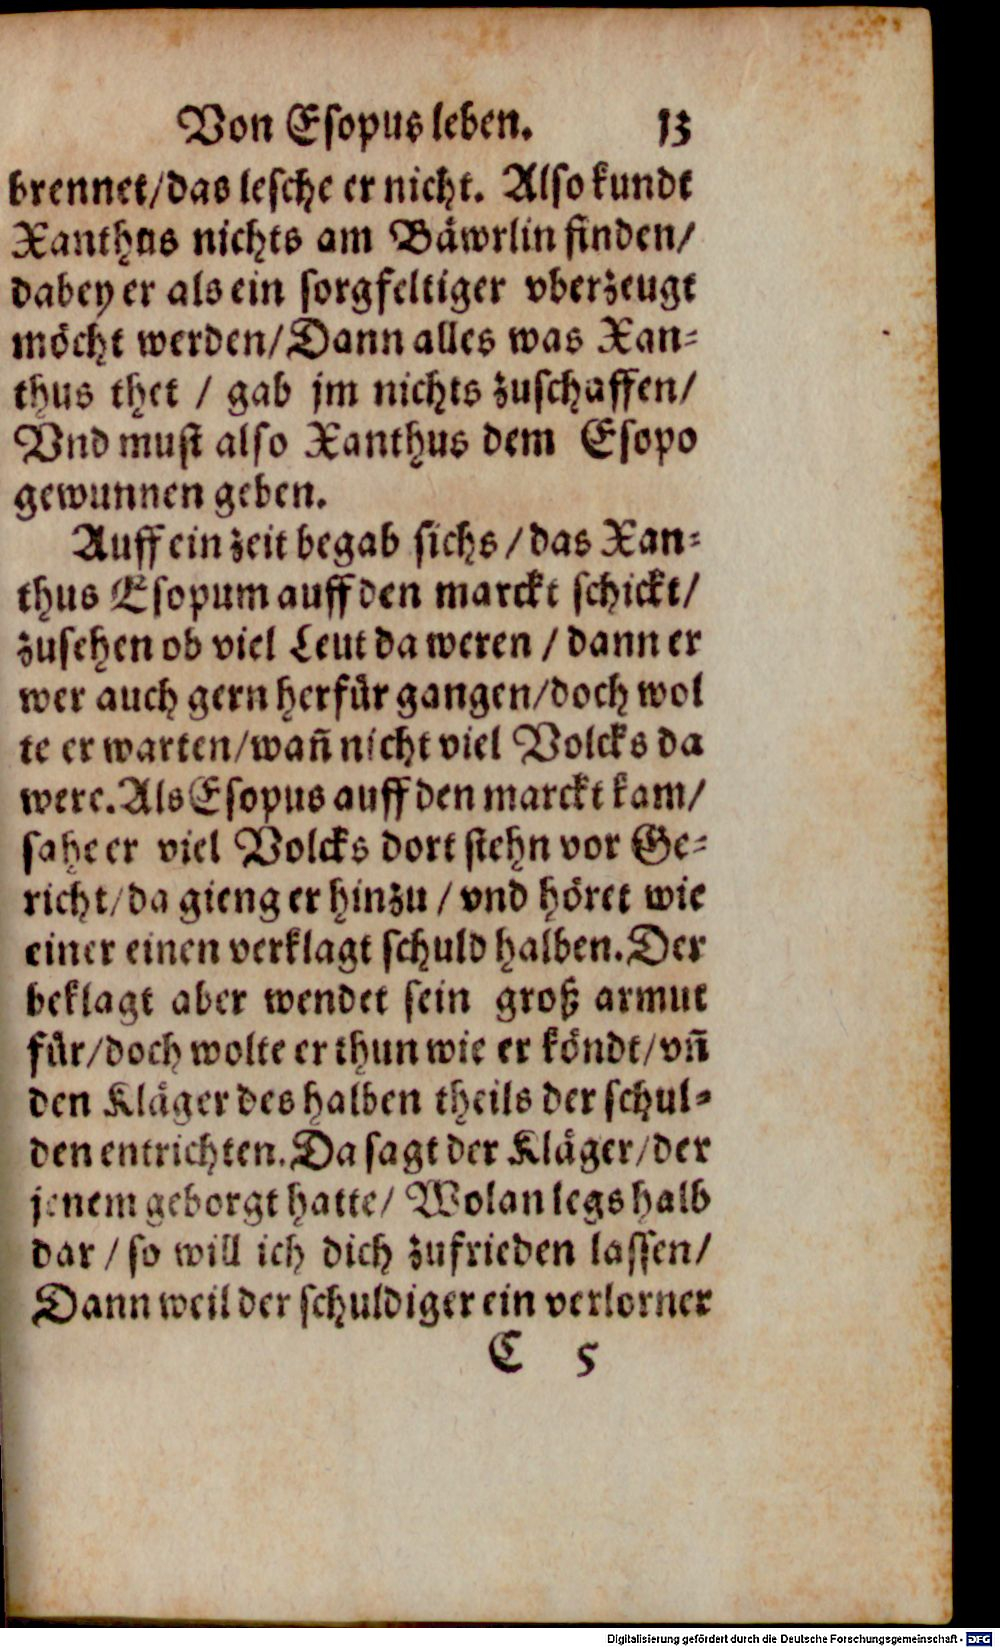 Von Esopus leben. 13
brennet/das lesche er nicht. Also kundt
Xanthus nichts am Bäwrlin finden/
dabey er als ein sorgfeltiger vberzeugt
möcht werden/Dann alles was Xan-
thus thet / gab jm nichts zuschaffen/
Vnd must also Xanthus dem Esopo
gewunnen geben.
Auff ein zeit begab sichs / das Xan-
thus Esopum auff den marckt schickt/
zusehen ob viel Leut da weren / dann er
wer auch gern herfür gangen/doch wol
te er warten/wañ nicht viel Volcks da
were. Als Esopus auff den marckt kam/
sahe er viel Volcks dort stehn vor Ge-
richt/da gieng er hinzu / vnd höret wie
einer einen verklagt schuld halben. Der
beklagt aber wendet sein groß armut
für/doch wolte er thun wie er köndt/vñ
den Kläger des halben theils der schul-
den entrichten. Da sagt der Kläger/der
jenem geborgt hatte/ Wolan legs halb
dar / so will ich dich zufrieden lassen/
Dann weil der schuldiger ein verlorner
C 5
Digitalisierung gefördert durch die Deutsche Forschungsgemeinschaft - DFG